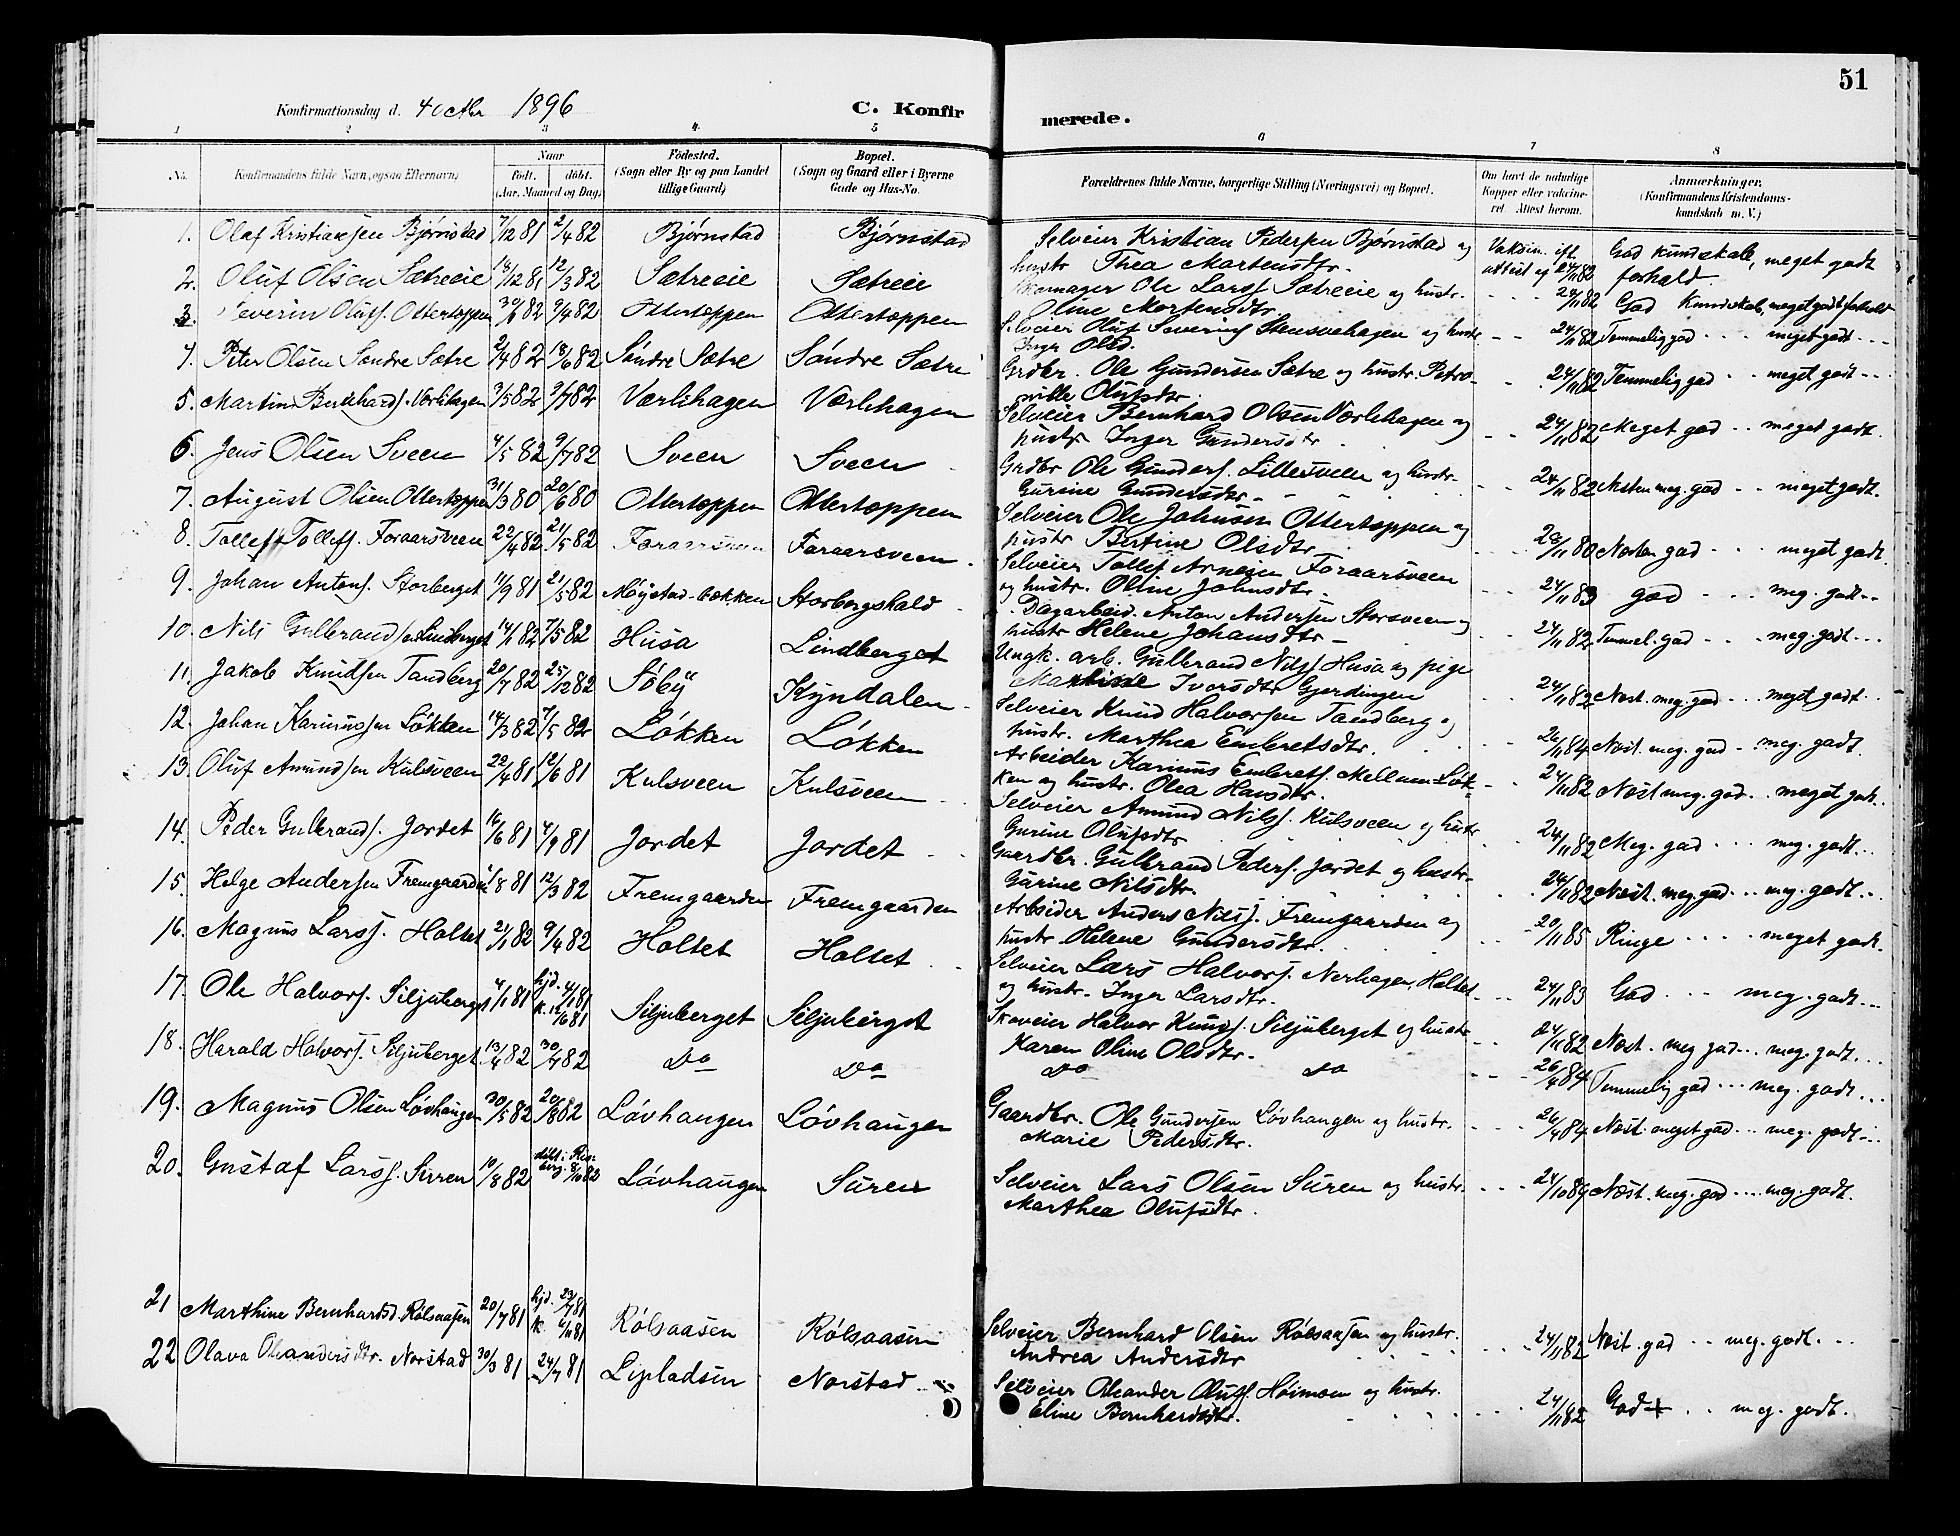 51
Konfirmationsdag d. 4 Octbr 1896 C. Konfirmerede.
1 2 3 4 5 6 7 8
No. Konfirmandens fulde Navn, ogsaa Efternavn) Naar født. døbt. (Aar, Maaned og Dag) Fødested. (Sogn eller By og paa Landet tillige Gaard) Bopæl. (Sogn og Gaard eller i Byerne Gade og Hus-No. Forældrenes fulde Navne, borgerlige Stilling (Næringsvei) og Bopæl. Om havt de naturlige Kopper eller vaccineret. Attest herom. Anmærkninger. (Konfirmandens Kristendomskundskab m. V.)
1. Olaf Kristiansen Bjørnstad 7/12 81 2/4 82 Bjørnstad Bjørnstad Selveier Kristian Pedersen Bjørnstad og hustr Thea Martensdtr. Vaksin. ift. attest af 24/11 82 God kundskab, meget godt forhold.
2. Oluf Olsen Sætreeie 18/12 81 12/3 82 Sætreeie Sætreeie Skomager Ole Larss. Sætreeie og hustr. Oline Mortensdtr. 24/11 82 God Kundskab, meget godt forhold
3. Severin Olufs. Ottertoppen 30/1 82 9/4 82 Ottertoppen Ottertoppen Selveier Oluf Severins. Stensvehagen og hustr Inger Olsd. 24/11 82 Temmelig god - - - meget godt - - -
4. Peter Olsen Søndre Sætre 2/4 82 18/6 82 Søndre Sætre Søndre Sætre Grdbr. Ole Gundersen Sætre og hustr. Petronille Olufsdtr. 24/11 82 Temmelig god - - meget godt - - -
5. Martin Bernhards. Værlihagen 3/5 82 9/7 82 Værlihagen Værlihagen Selveier Bernhard Olsen Værlehagen og hustr Inger Gundersdtr - - 24/11 82 Meget god - - meget godt.
6. Jens Olsen Sveen 4/5 82 9/7 82 Sveen Sveen Grdbr Ole Gunders. Lillesveen og hustr. Gurine Gundersdtr - 24/11 82 Næsten meg. god - - meget godt.
7. August Olsen Ottertoppen 31/3 80 20/6 80 Ottertoppen Ottertoppen Selveier Ole Johnsen Ottertoppen og hustr Bertine Olsdtr. 29/11 80 Næsten god - - - meget godt.
8. Tollef Tollefs. Foraarsveen 22/4 82 21/5 82 Foraarsveen Foraarsveen Selveier Tollef Arnesen Foraarsveen og hustr. Oline Johnsdtr. 24/11 83 god - - - meg. godt - -
9. Johan Antons. Storberget 11/9 81 21/5 82 Møystad-bækken Storbergshald Dagarbeid. Anton Andersen Storsveen og hustr Helene Johansdtr - 24/11 82 Temmel. god - - - meg. godt - - -
10. Nils Gulbrandsen Lindberget 14/1 82 7/5 82 Husa Lindberget Ungk. arb. Gulbrand Nilss Husa og pige Marthine Iversdtr Gjerdingen 24/11 82 Næst. meg. god - - meget godt - -
11. Jakob Knudsen Tandberg 20/7 82 25/12 82 Søby Kyndalen Selveier Knud Halvorsen Tandberg og hustr. Marthea Embretsdtr. 26/11 84 Næst. meg. god - meg. godt.
12. Johan Karinussen Løkken 14/3 82 7/5 82 Løkken Løkken Arbeider Karinus Embrets. Mellem Løkken og hustr. Olea Hansdtr. 24/11 82 Næst meg. god - - meget godt.
13. Oluf Amundsen Kulsveen 22/4 81 12/6 81 Kulsveen Kulsveen Selveier Amund Nilss. Kulsveen og hustr Gurine Olufsdtr 24/11 82 Meg. god - - - meg. godt - -
14. Peder Gulbrands. Jordet 16/6 81 4/9 81 Jordet Jordet Gaardbr. Gulbrand Peders. Jordet og hustr. Gurine Nilsdtr. 24/11 82 Næst. meg. god - - - meg. godt - -
15. Helge Andersen Fremgaarden 1/8 81 12/3 82 Fremgaarden Fremgaarden Arbeider Anders Nilss. Fremgaarden og hustr. Helene Gundersdtr. 20/11 85 Ringe - - - - meget godt.
16. Magnus Larss. Holtet 21/1 82 9/4 82 Holtet Holtet Selveier Lars Halvors. Nerhagen, Holtet og hustr. Inger Larsdtr. 24/11 83 God - - - meg. godt - - -
17. Ole Halvors. Siljuberget 4/1 81 hjd. 4/1 81 k. 12/6 81 Siljuberget Siljuberget Skoveier Halvor Knuds. Siljuberget og hustr Karen Oline Olsdtr. 24/11 82 Næst. meg god - - meg. godt. - - -
18. Harald Halvors. Siljuberget 13/4 82 30/4 82 Do Do Do Do - - - 26/4 84 Temmelig god - - - meg. godt - - -
19. Magnus Olsen Løvhaugen 30/5 82 20/8 82 Løvhaugen Løvhaugen Gaardbr. Ole Gundersen Løvhaugen og hustr. Marie Pedersdtr. 26/4 84 Næst. meget god - - meg. godt - - -
20. Gustaf Larss. Suren 10/8 82 døbt i 8/10 82 Løvhaugen Suren Selveier Lars Olsen Suren og hustr. Marthea Olufsdtr. - - - 24/10 84 Næst. meg. god - - - meg. godt.
21 Marthine Bernhardsd. Rølsaasen 20/7 81 hjd. 23/7 81 K. 6/11 81 Rølsaasen Rølsaasen Selveier Bernhard Olsen Rølsaasen og hustr. Andrea Andersdtr 24/11 82 Næst. god - - meg. godt. - - -
22 Olava Oleandersdtr. Norstad 30/3 81 24/7 81 Lipladsen Norstad Selveier Oleander Olufs. Høimoen og hustr. Eline Bernhardsdtr. 24/11 82 God + - - meg. godt.